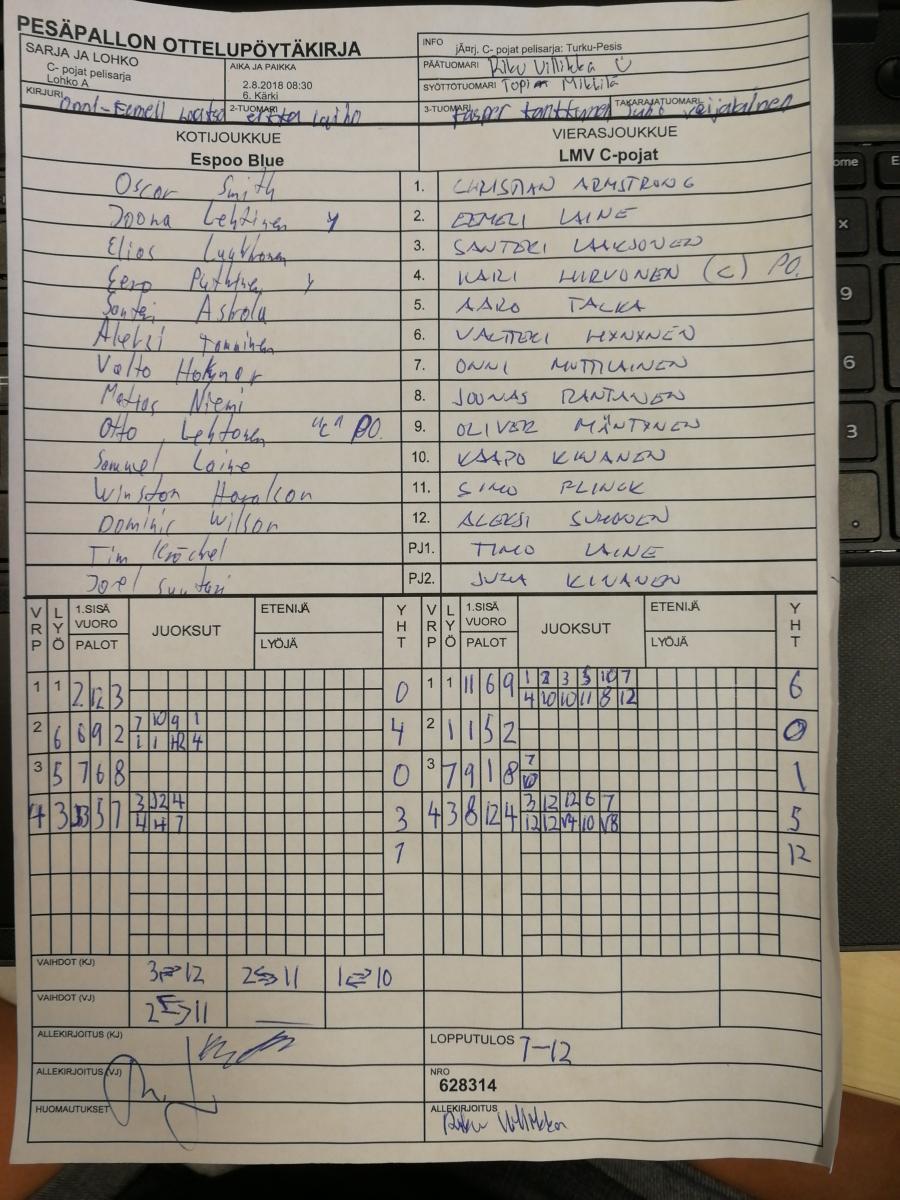 PESÄPALLON OTTELUPÖYTÄKIRJA
SARJA JA LOHKO
C- pojat pelisarja
Lohko A
AIKA JA PAIKKA
2.8.2018 08:30
6. Kärki
INFO
jÄ¤rj. C- pojat pelisarja: Turku-Pesis
PÄÄTUOMARI Riku Villikka
SYÖTTÖTUOMARI Topi Mikkilä
KIRJURI
2-TUOMARI
3-TUOMARI
TAKARAJATUOMARI
KOTIJOUKKUE
Espoo Blue
VIERASJOUKKUE
LMV C-pojat
Oscar Smith 1. CHRISTIAN ARMSTRONG
Joona Lehtinen y 2. EEMELI LAINE
Elias Lyykkonen 3. SANTERI LAAKSONEN
Eero 4. KARI HIRVONEN (C) PO.
Santeri Askola 5. AARO TALKA
Aleksi Tamminen 6. VALTTERI HYNYNEN
Valto 7. ONNI MUTTILAINEN
Matias Niemi 8. JOONAS RANTANEN
Otto Lehtonen "C" PO. 9. OLIVER MÄNTYNEN
Samuel Laine 10. KAAPO KINANEN
Winston 11. SIMO PLINCK
Dominic Wilson 12. ALEKSI
Tim PJ1. TIMO LAINE
Joel PJ2. JUHA KINANEN
VRP LYÖ 1.SISÄ VUORO PALOT JUOKSUT ETENIJÄ LYÖJÄ YHT VRP LYÖ 1.SISÄ VUORO PALOT JUOKSUT ETENIJÄ LYÖJÄ YHT
1 1 2 12 3 0 1 1 11 6 9 1 2 3 5 10 7 6
4 10 10 11 8 12
2 6 6 9 2 7 10 9 1 4 2 1 1 5 2 0
1 1 12 4
3 5 7 6 8 0 3 7 9 1 8 7 1
10
4 3 5 7 3 12 4 3 4 3 8 12 4 3 12 12 6 7 5
4 4 7 12 12 10
7 12
VAIHDOT (KJ) 3⇄12 2⇄11 1⇄10
VAIHDOT (VJ) 2⇄11
ALLEKIRJOITUS (KJ)
LOPPUTULOS 7-12
ALLEKIRJOITUS (VJ)
NRO
628314
HUOMAUTUKSET
ALLEKIRJOITUS
Riku Villikka